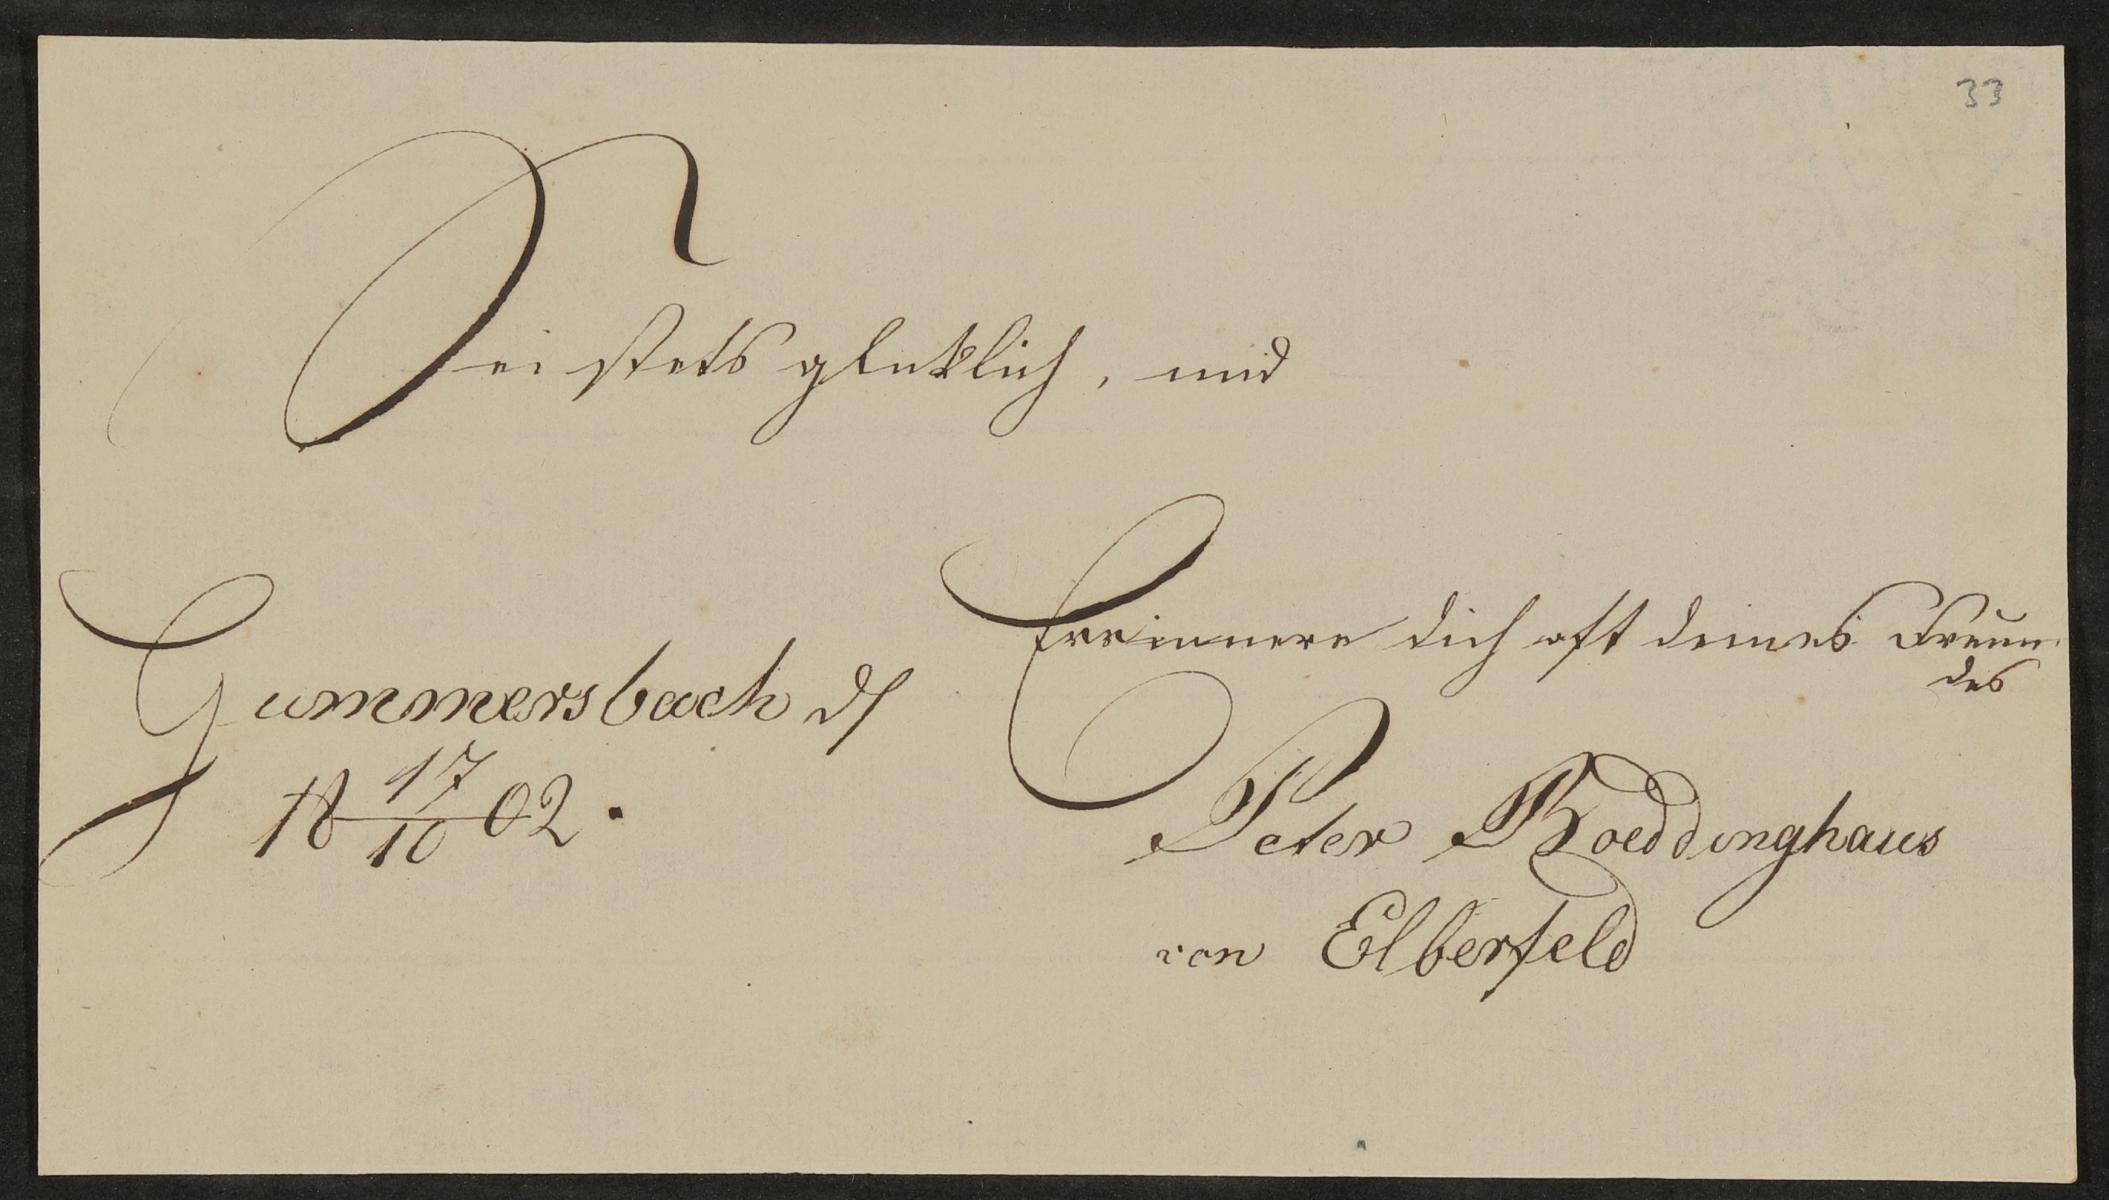 33
Sei stets glüklich, und
Errinnere dich oft deines Freun-
des
Gummersbach d
18 17/10 02.
Peter Roeddinghaus
von Elberfeld